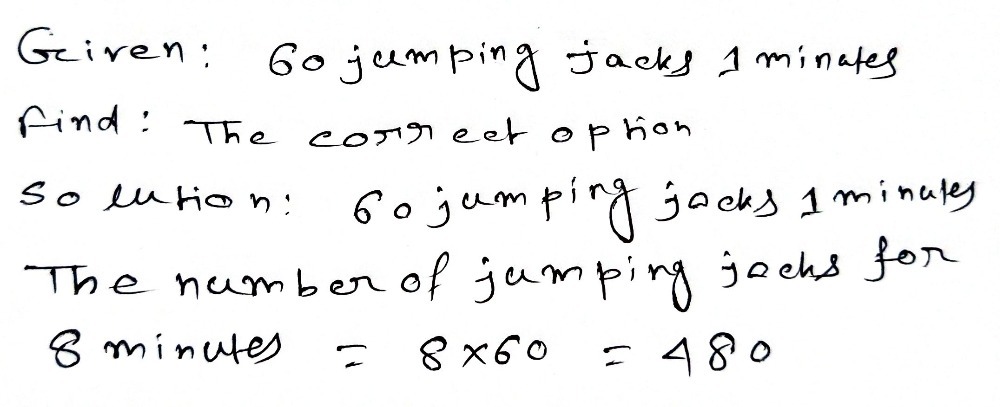 Given: 60 jumping jacks 1 minutes
find: The correct option
Solution: 60 jumping jacks 1 minutes
The number of jumping jacks for
8 minutes = 8×60 = 480